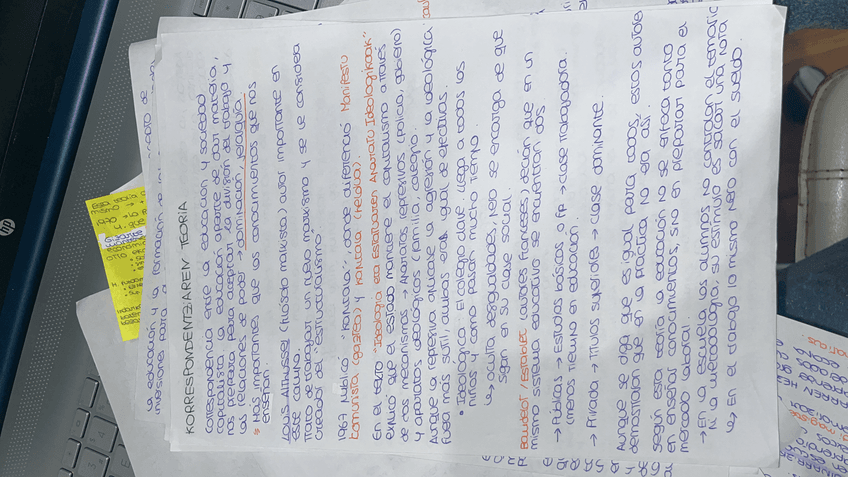 KORRESPONDENTZIAREN TEORIA
Correspondencia entre la educación y sociedad
capitalista. La educación aparte de dar materia,
nos prepara para aceptar la división del trabajo y
las relaciones de poder → dominación, jerarquía.
→ Más importantes que los conocimientos que nos
enseñan.
LOUIS Althusser (filósofo marxista) autor importante en
este camino.
Trató de adaptar un nuevo marxismo y se le considera
creador del "estructuralismo".
1967 publicó "Kapitala", donde diferenció Manifestu
Komunista (gaztea) y Kapitala (heldua).
En el texto "Ideologia eta Estatuaren Aparatu Ideologikoak"
explicó que el estado mantiene el capitalismo a través
de dos mecanismos → Aparatos represivos (policía, ejército)
y aparatos ideológicos (familia, colegio).
Aunque la represiva utilizase la agresión y la ideológica
fuera más sutil, ambas eran igual de efectivas.
• Ideológica: El colegio clave. Llega a todos los
niños y como pasan mucho tiempo.
↳ oculta desigualdades, pero se encarga de que
sigan en su clase social.
Baudelot / Establet (autores franceses) decían que en un
mismo sistema educativo se encuentran dos
→ Pública → Estudios básicos o fp → clase trabajadora.
(menos tiempo en educación.
→ Privada → Títulos superiores → clase dominante.
Aunque se diga que es igual para todos, estos autores
demostraron que en la práctica no era así.
Según esta teoría la educación no se enfoca tanto
en enseñar conocimientos, sino en preparar para el
mercado laboral.
→ En la escuela los alumnos no controlan el temario
ni la metodología, su estímulo es sacar una nota
↳ En el trabajo lo mismo pero con el sueldo.
la educación y la formación de los
inversiones para la
Esta teoría
mismo →
1970 →
hp